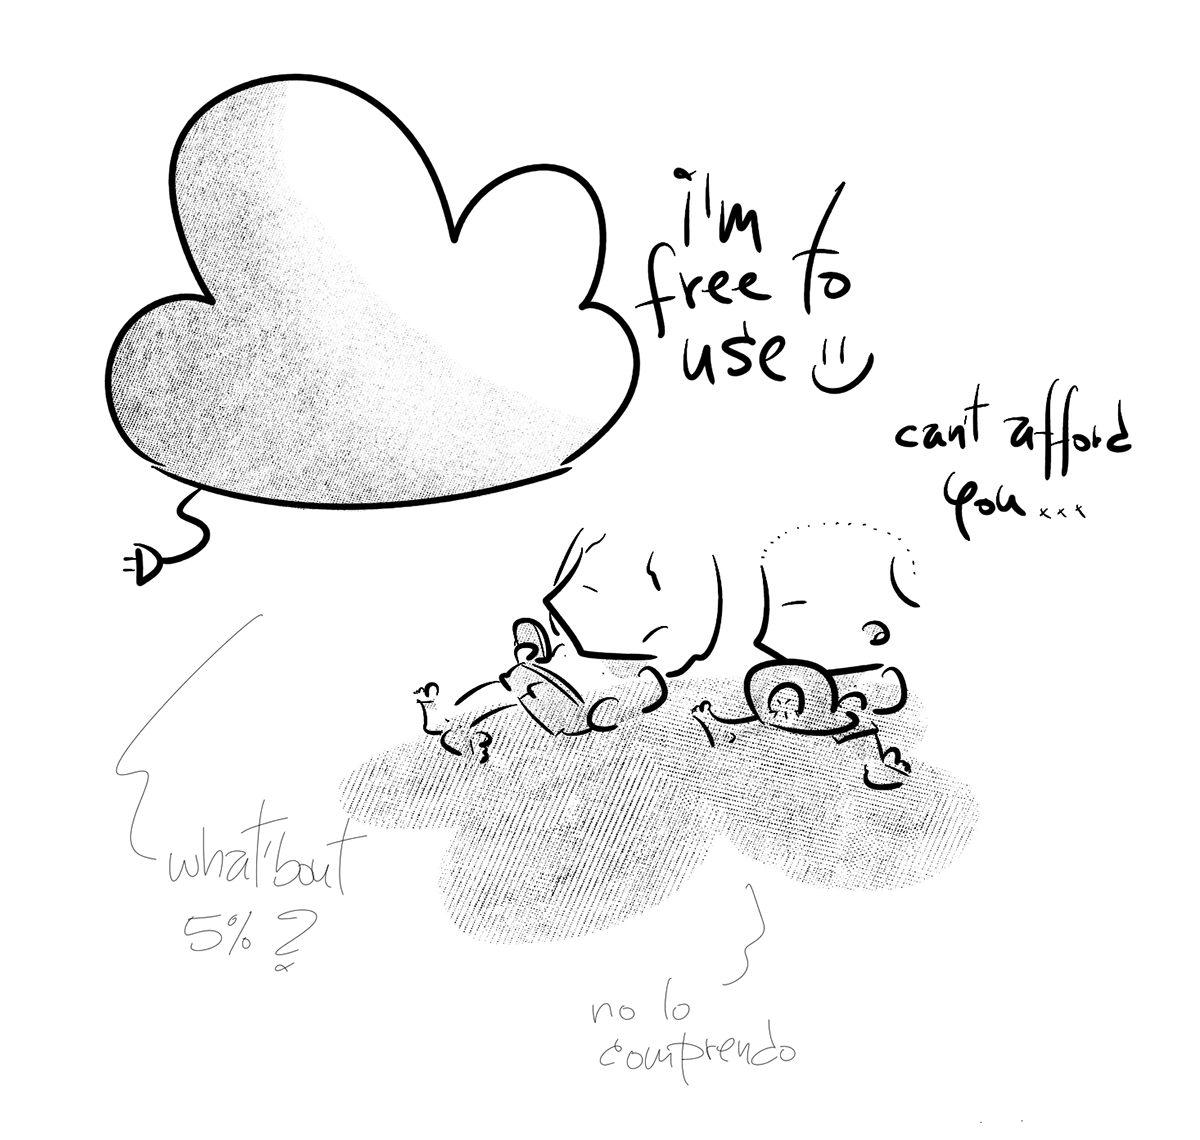 i'm
free to
use
can't afford
you...
what'bout
5%?
no lo
comprendo